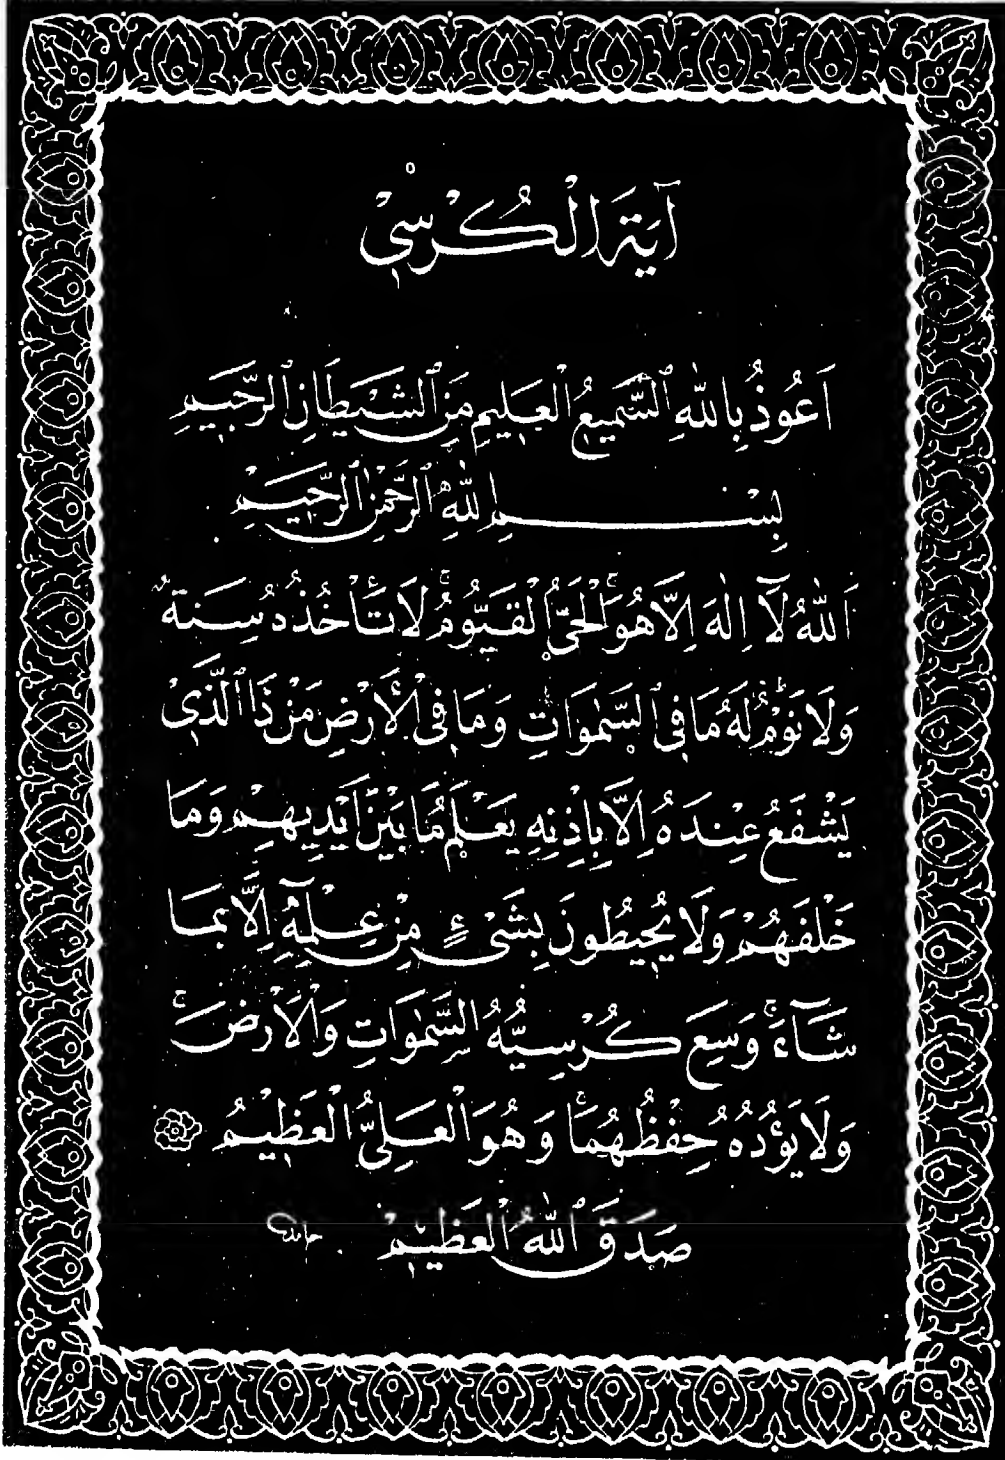 آيَةَ الْكُرْسِيْ
اَعُوذُ بِاللّٰهِ السَّمِيعُ الْعَلِيمِ مِنَ الشَّيْطَانِ الرَّجِيمِ
بِسْمِ اللّٰهِ الرَّحْمٰنِ الرَّحِيمِ
اَللّٰهُ لَآ اِلٰهَ اِلَّا هُوَ اَلْحَىُّ الْقَيُّومُ لَا تَأْخُذُهُ سِنَةٌ
وَلَا نَوْمٌ لَهُ مَا فِى السَّمٰوَاتِ وَمَا فِى الْاَرْضِ مَنْ ذَا الَّذِى
يَشْفَعُ عِنْدَهُ اِلَّا بِاِذْنِهِ يَعْلَمُ مَا بَيْنَ اَيْدِيهِمْ وَمَا
خَلْفَهُمْ وَلَا يُحِيطُونَ بِشَىْءٍ مِنْ عِلْمِهِٓ اِلَّا بِمَا
شَآءَ وَسِعَ كُرْسِيُّهُ السَّمٰوَاتِ وَالْاَرْضَ
وَلَا يَؤُدُهُ حِفْظُهُمَا وَهُوَ الْعَلِىُّ الْعَظِيمُ
صَدَقَ اللّٰهُ الْعَظِيمْ
حامد